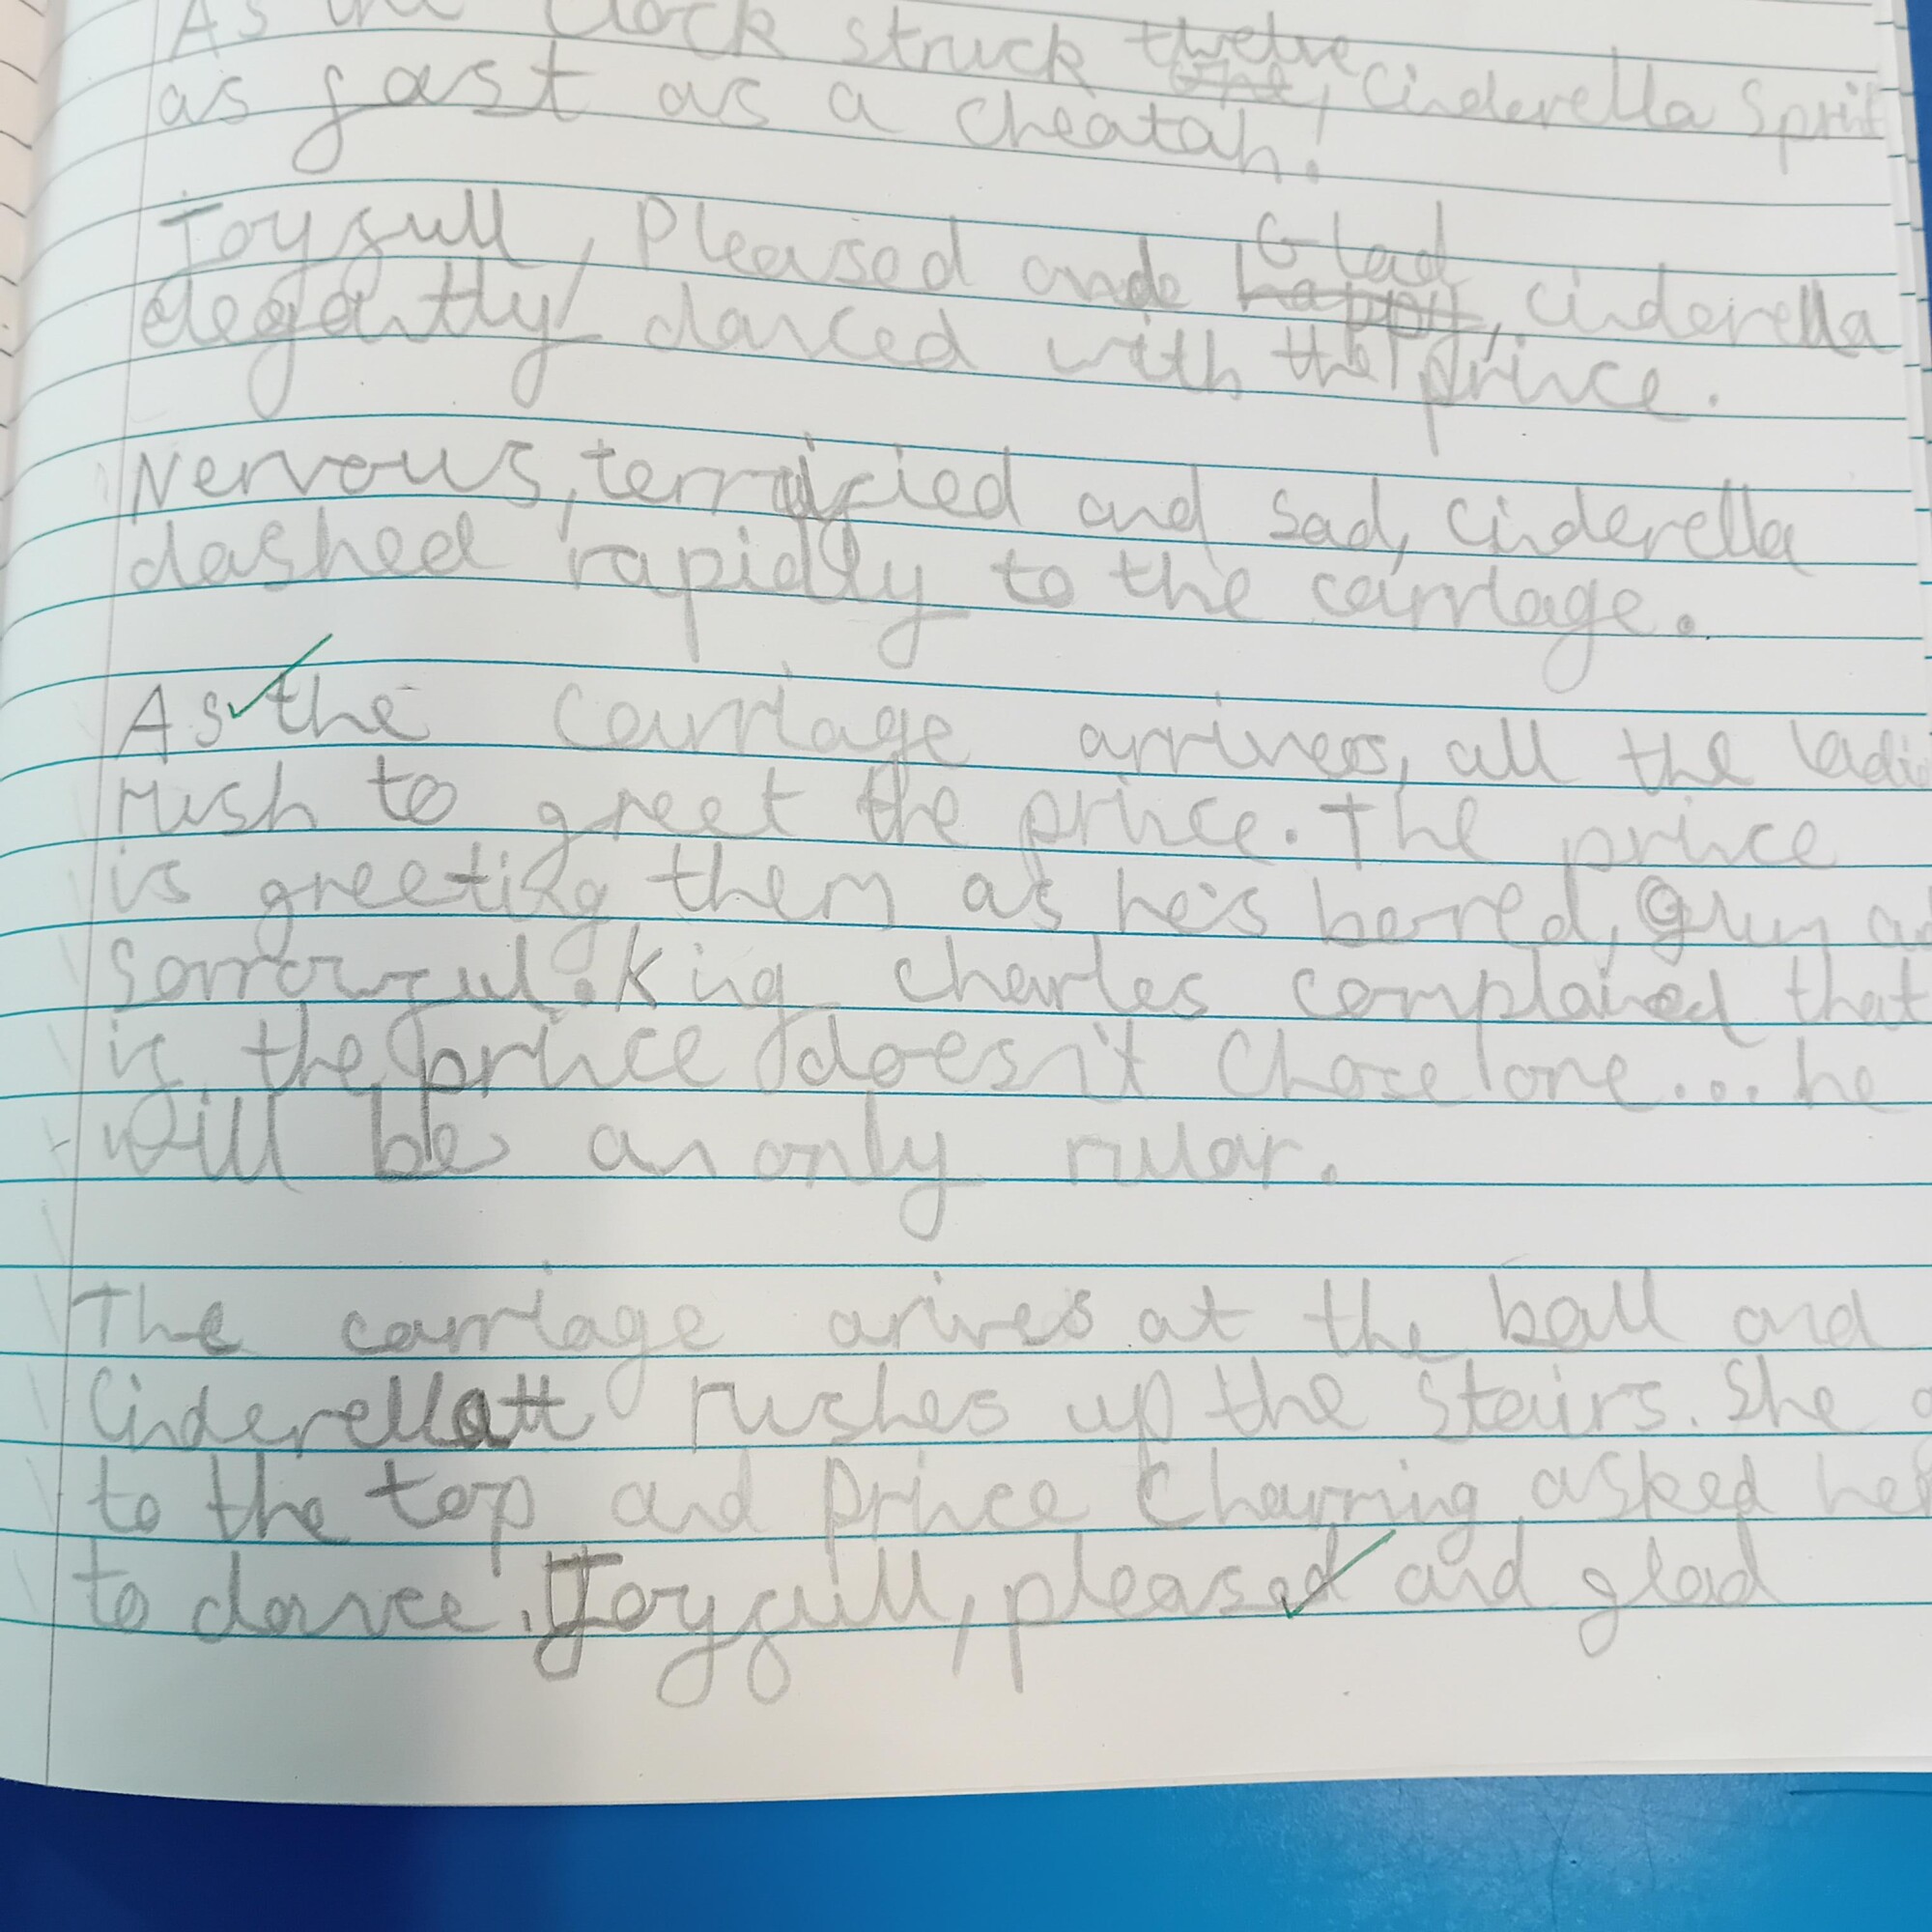 As the clock struck twelve, Cinderella
as fast as a cheatah!
Joyfull, Pleased and Glad, cinderella
elegantly danced with the prince.
Nervous, terrified and sad, cinderella
dashed rapidly to the carriage.
As the carriage arrives, all the
rush to greet the prince. The prince
is greeting them as he's borred, grum
Sorrowful. King charles complained that
if the prince doesn't Chose one... he
will be an only rular.
The carriage arives at the ball and
Cinderella rushes up the stairs. She
to the top and prince Charming asked her
to dance. Joyfull, pleased and glad